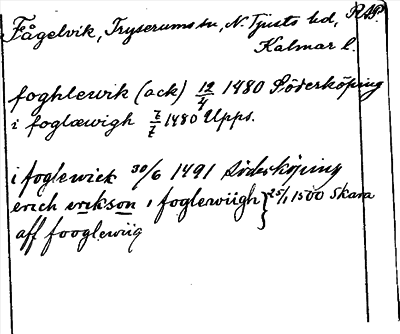 Fågelvik, Tryserums sn, N. Tjusts hd, RAP
Kalmar l.
foghlewik (ack) 12/4 1480 Söderköping
i foglæwigh 7/7 1480 Upps.
i foglewick 30/6 1491 Söderköping
erich erikson i foglewiigh } 25/1 1500 Skara
aff fooglewiig